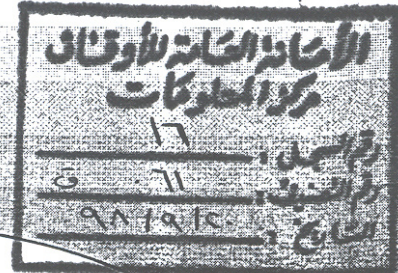 الأمانة العامة للأوقاف
مركز المعلومات
رقم التسجيل : ١٦
رقم التصنيف : ٦١
التاريخ :